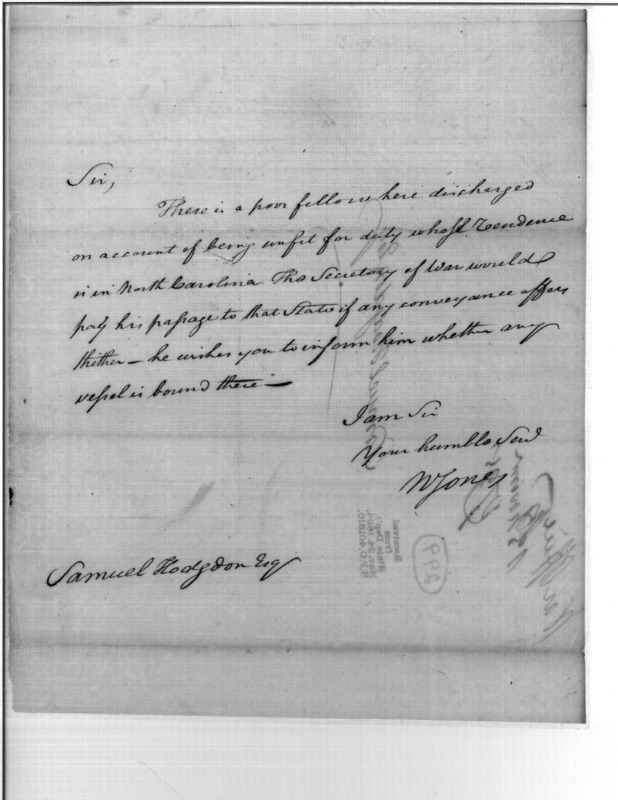 Sir,
There is a poor fellow here discharged
on account of being unfit for duty whose Residence
is in North Carolina The Secretary of War would
pay his passage to that State if any conveyance offers
thither — he wishes you to inform him whether any
vessel is bound there —
I am Sir
Your humble Serv
W Jones
Samuel Hodgdon Esq
Received
from
State Dep't